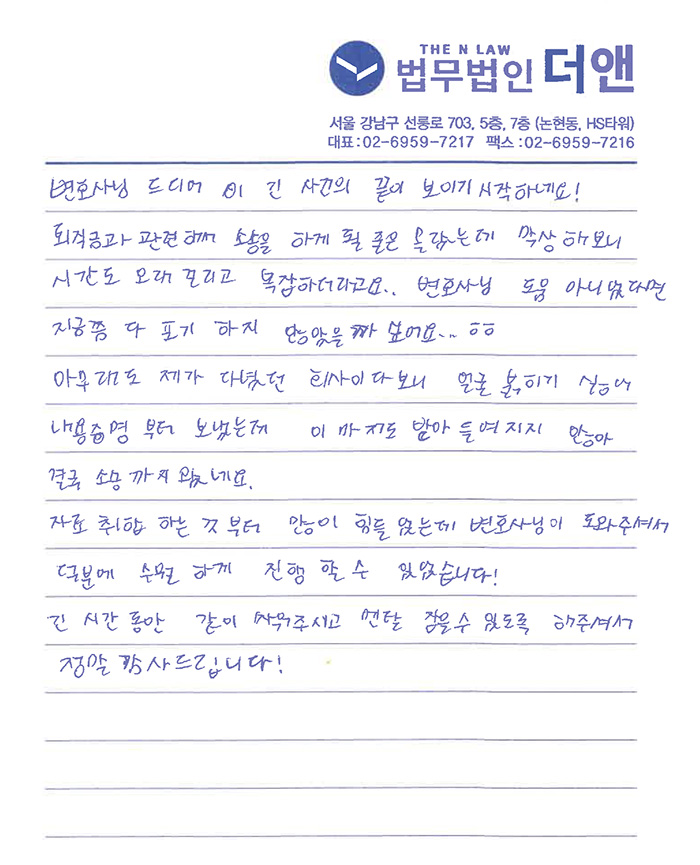 THE N LAW
법무법인 더앤
서울 강남구 선릉로 703, 5층, 7층 (논현동, HS타워)
대표 : 02-6959-7217 팩스 : 02-6959-7216
변호사님 드디어 이 긴 사건의 끝이 보이기 시작하네요!
퇴직금과 관련해서 소송을 하게 될 줄은 몰랐는데 막상 해보니
시간도 오래 걸리고 복잡하더라고요.. 변호사님 도움 아니었다면
지금쯤 다 포기 하지 않았을까 싶어요... ㅎㅎ
아무래도 제가 다녔던 회사이다보니 얼굴 붉히기 싫어서
내용증명 부터 보냈는데 이 마저도 받아 들여지지 않아
결국 소송 까지 왔네요.
자료 취합 하는 것 부터 많이 힘들었는데 변호사님이 도와주셔서
덕분에 수월 하게 진행 할 수 있었습니다!
긴 시간 동안 같이 싸워주시고 멘탈 잡을 수 있도록 해주셔서
정말 감사드립니다!